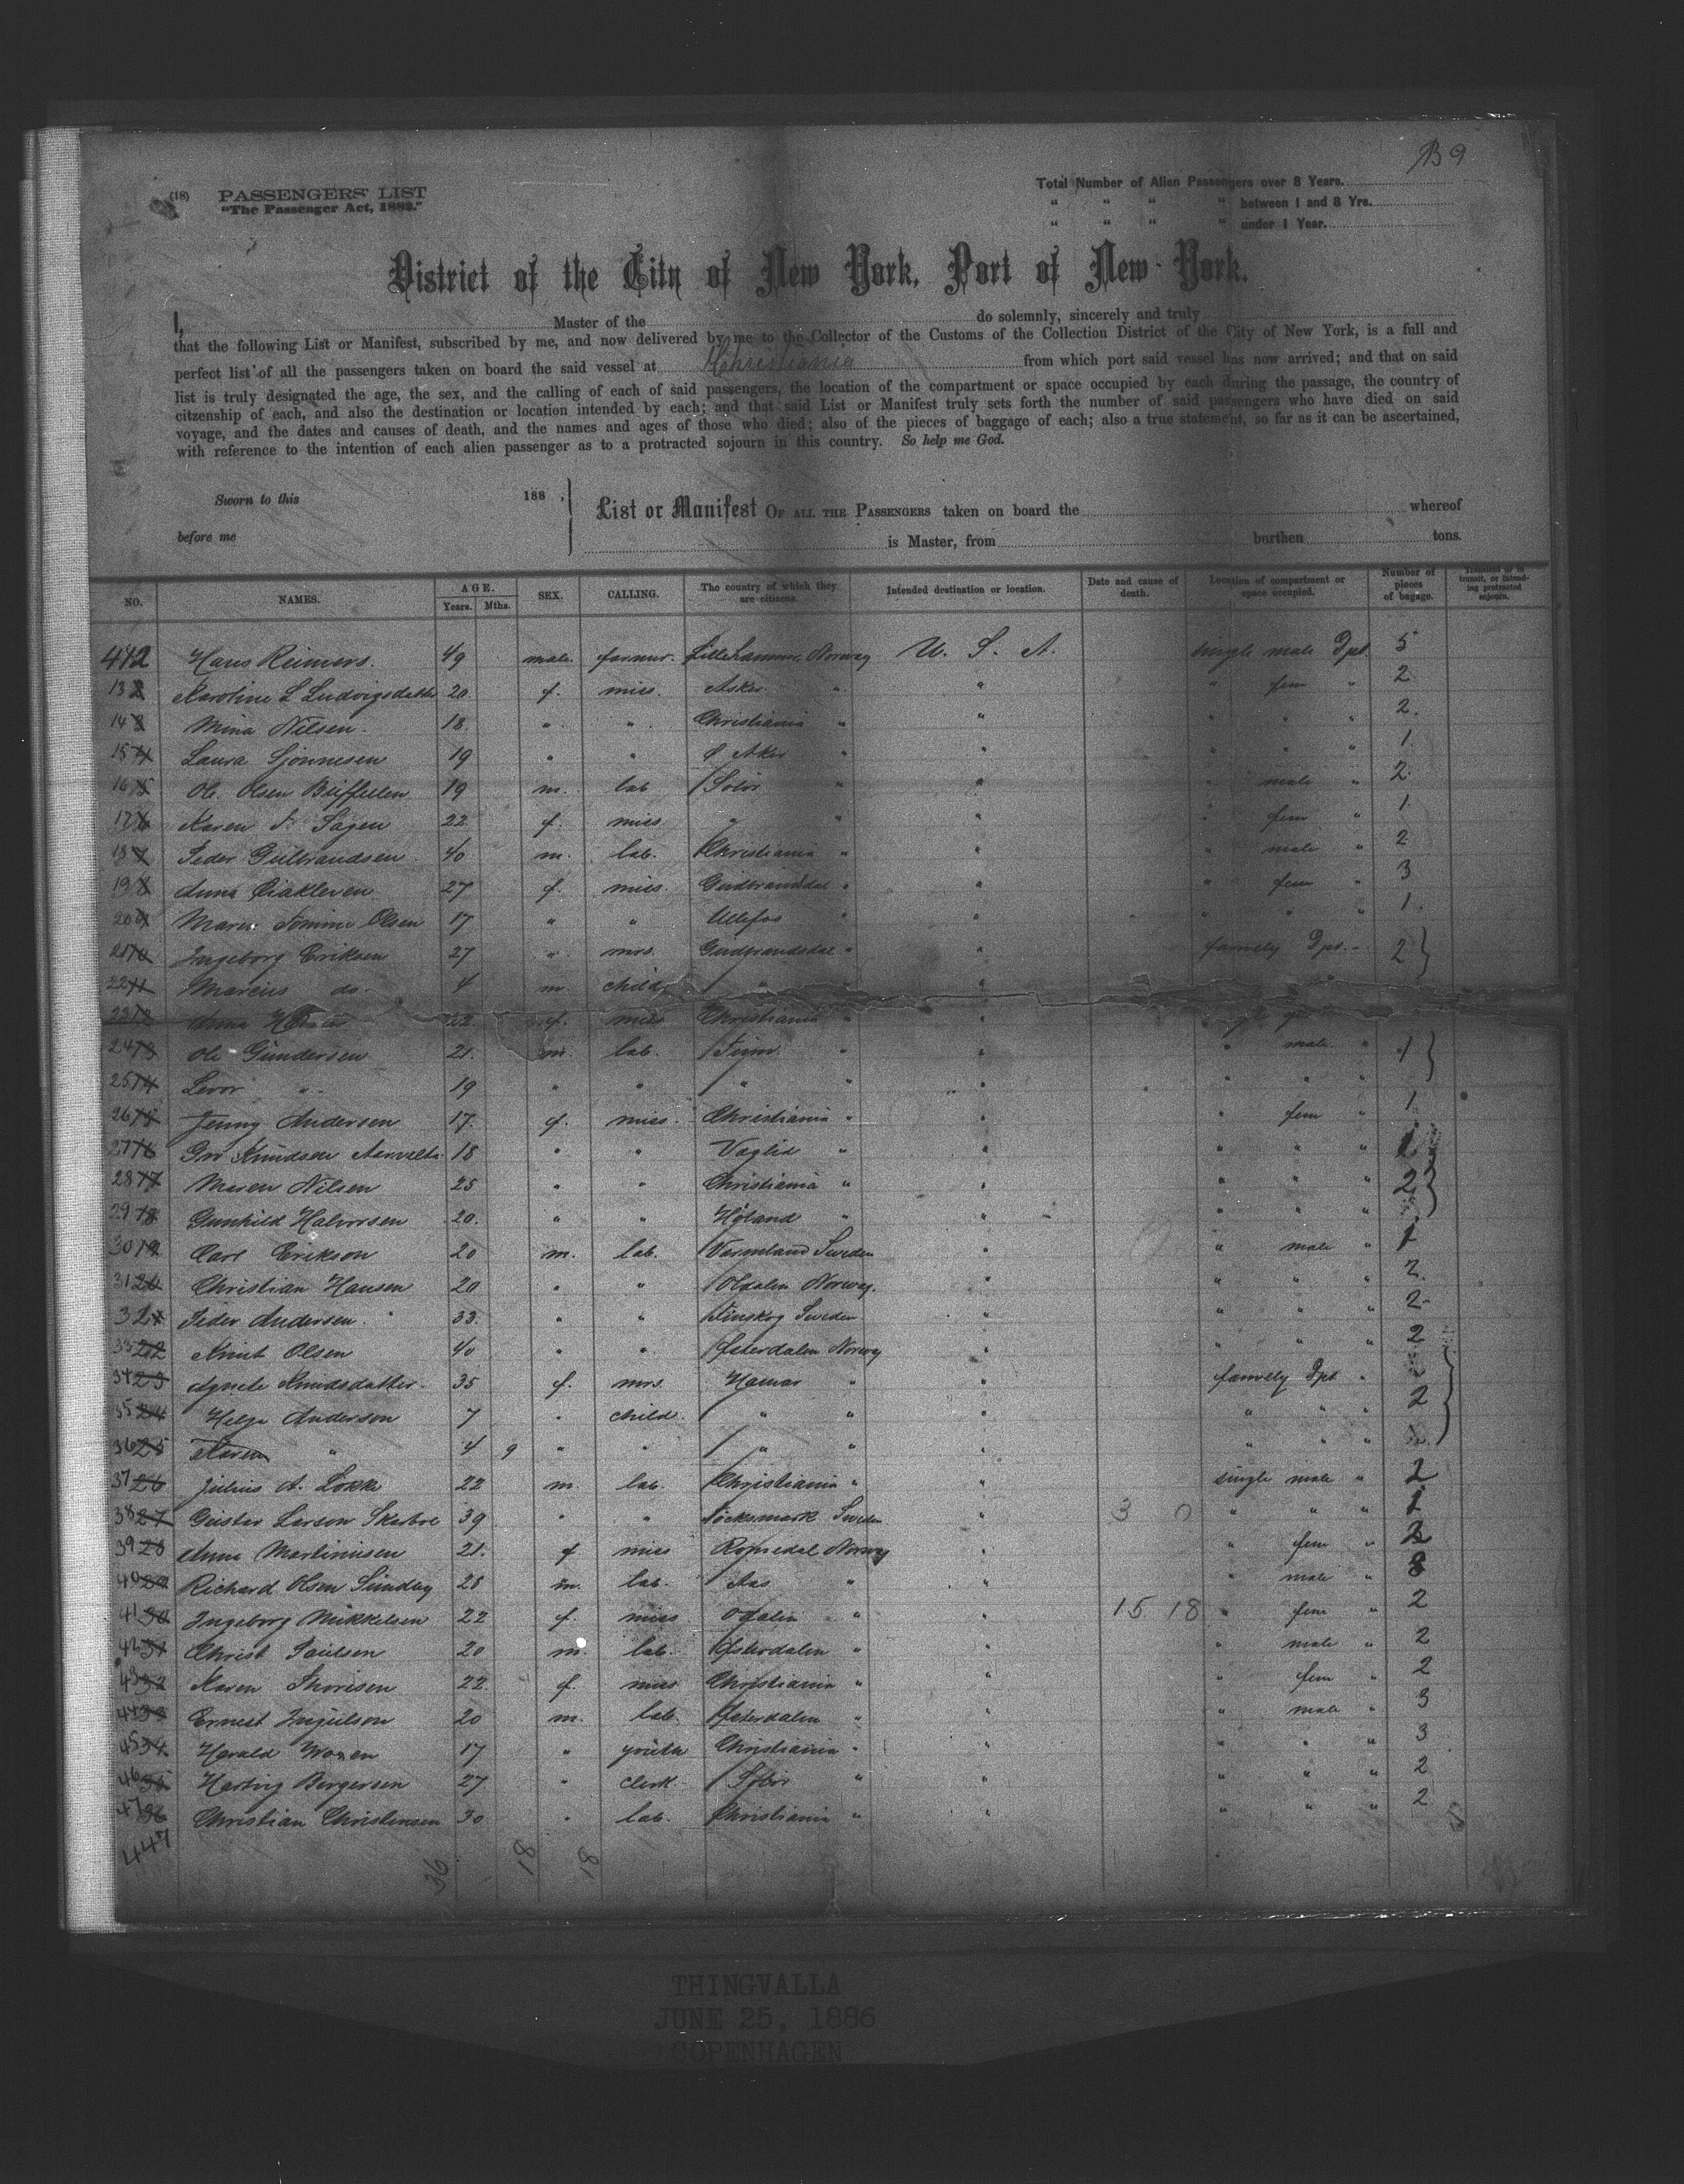 B9
(18) PASSENGERS' LIST
"The Passenger Act, 1882."
Total Number of Alien Passengers over 8 Years.
" " " " between 1 and 8 Yrs.
" " " " under 1 Year.
District of the City of New York, Port of New York.
I, Master of the do solemnly, sincerely and truly
that the following List or Manifest, subscribed by me, and now delivered by me to the Collector of the Customs of the Collection District of the City of New York, is a full and
perfect list of all the passengers taken on board the said vessel at Christiania from which port said vessel has now arrived; and that on said
list is truly designated the age, the sex, and the calling of each of said passengers, the location of the compartment or space occupied by each during the passage, the country of
citzenship of each, and also the destination or location intended by each; and that said List or Manifest truly sets forth the number of said passengers who have died on said
voyage, and the dates and causes of death, and the names and ages of those who died; also of the pieces of baggage of each; also a true statement, so far as it can be ascertained,
with reference to the intention of each alien passenger as to a protracted sojourn in this country. So help me God.
Sworn to this 188 ,
before me
List or Manifest OF ALL THE PASSENGERS taken on board the whereof
is Master, from burthen tons.
NO. NAMES. AGE. Years. Mths. SEX. CALLING. The country of which they are citizens. Intended destination or location. Date and cause of death. Location of compartment or space occupied. Number of pieces of bagage. transit, or intending protracted sojourn.
412 Hans Reimers. 49 male. farmer. Lillehammer, Norway U. S. A. single male Dpt. 5
13 Karoline L Ludvigsdatter 20 f. miss. Asker " " " fem " 2
14 Mina Nilsen. 18. " " Christiania " " " " " 2.
15 Laura 19 " " Aker " " " " " 1.
16 Ole Olsen 19 m. lab Solör " " " male " 2.
17 Karen Sagen 22 f. miss. " " " " fem " 1.
18 Peder Gulbrandsen 40 m. lab. Christiania " " " male " 2
19 Anna 27 f. miss. Gudbrandsdal " " " fem " 3
20 Maren Olsen 17 " " Ullefos " " " " " 1.
21 Ingeborg Eriksen 27 " mrs. Gudbrandsdal " " famely Dpt. 2
22 Marcius do. 4 m. child " " "
23 Anna 22 f. miss Christiania " "
24 Ole Gundersen 21. m. lab. " " " male " 1
25 " 19 " " " " " " " "
26 Jenny Andersen 17. f. miss. Christiania " " " fem " 1.
27 Knudsen 18 " " " " " " " 1
28 Maren Nilsen 25 " " Christiania " " " " " 2
29 Gunhild Halvorsen 20. " " Höland " " " " "
30 Carl Erikson 20 m. lab. Värmland Sweden " " male " 1
31 Christian Hansen 20 " " Norway. " " " " 2.
32 Peder Andersen. 33. " " Finskog Sweden " " " " 2
33 Knut Olsen 40 " " Österdalen Norway " " " " 2
34 Agnete Knudsdatter 35 f. mrs. Hamar " " famely Dpt "
35 Helga Anderson 7 " child. " " " " " " 2
36 Karen " 4 9 " " " " " " " "
37 Julius A. Lökke 22 m. lab. Christiania " " single male " 2
38 Larson 39 " " Sweden " 3 0 " " " 1
39 Anna Martinusen 21. f. miss Romsdal Norway " " fem " 2
40 Richard Olsen 28 m. lab. Aas " " " male " 3
41 Ingeborg Mikkelsen 22 f. miss Odalen " " 15 18 " fem " 2
42 Christ Paulsen 20 m. lab. Österdalen " " " male " 2
43 Karen Thoresen 22. f. miss Christiania " " " fem " 2
44 Ernest 20 m. lab. Österdalen " " " male " 3
45 Harald 17 " youth Christiania " " " " " 3
46 Hartvig Bergersen 27 " clerk Solör " " " " " 2
47 Christian Christensen 30 " lab. Christiania " " " " " 2
447 36 18 18
THINGVALLA
JUNE 25, 1886
COPENHAGEN